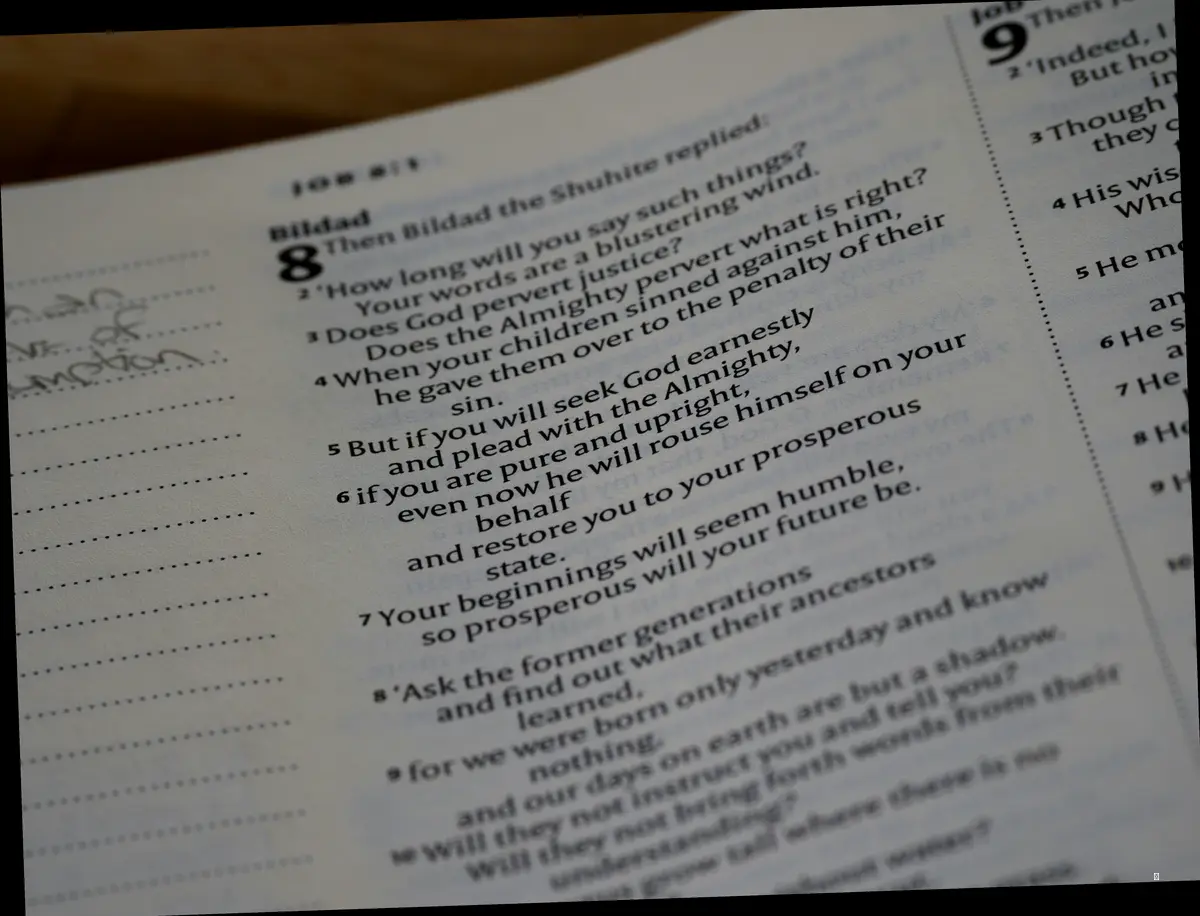 JOB 8:1
Bildad
8 Then Bildad the Shuhite replied:
2 'How long will you say such things?
Your words are a blustering wind.
3 Does God pervert justice?
Does the Almighty pervert what is right?
4 When your children sinned against him,
he gave them over to the penalty of their
sin.
5 But if you will seek God earnestly
and plead with the Almighty,
6 if you are pure and upright,
even now he will rouse himself on your
behalf
and restore you to your prosperous
state.
7 Your beginnings will seem humble,
so prosperous will your future be.
8 'Ask the former generations
and find out what their ancestors
learned,
9 for we were born only yesterday and know
nothing,
and our days on earth are but a shadow.
10 Will they not instruct you and tell you?
Will they not bring forth words from their
understanding?
grow tall where there is no
without water?
Job
9 Then
2 'Indeed, I
But how
3 Though
they
4 His
Who
5 He
6 He
7 He
8 He
9
10